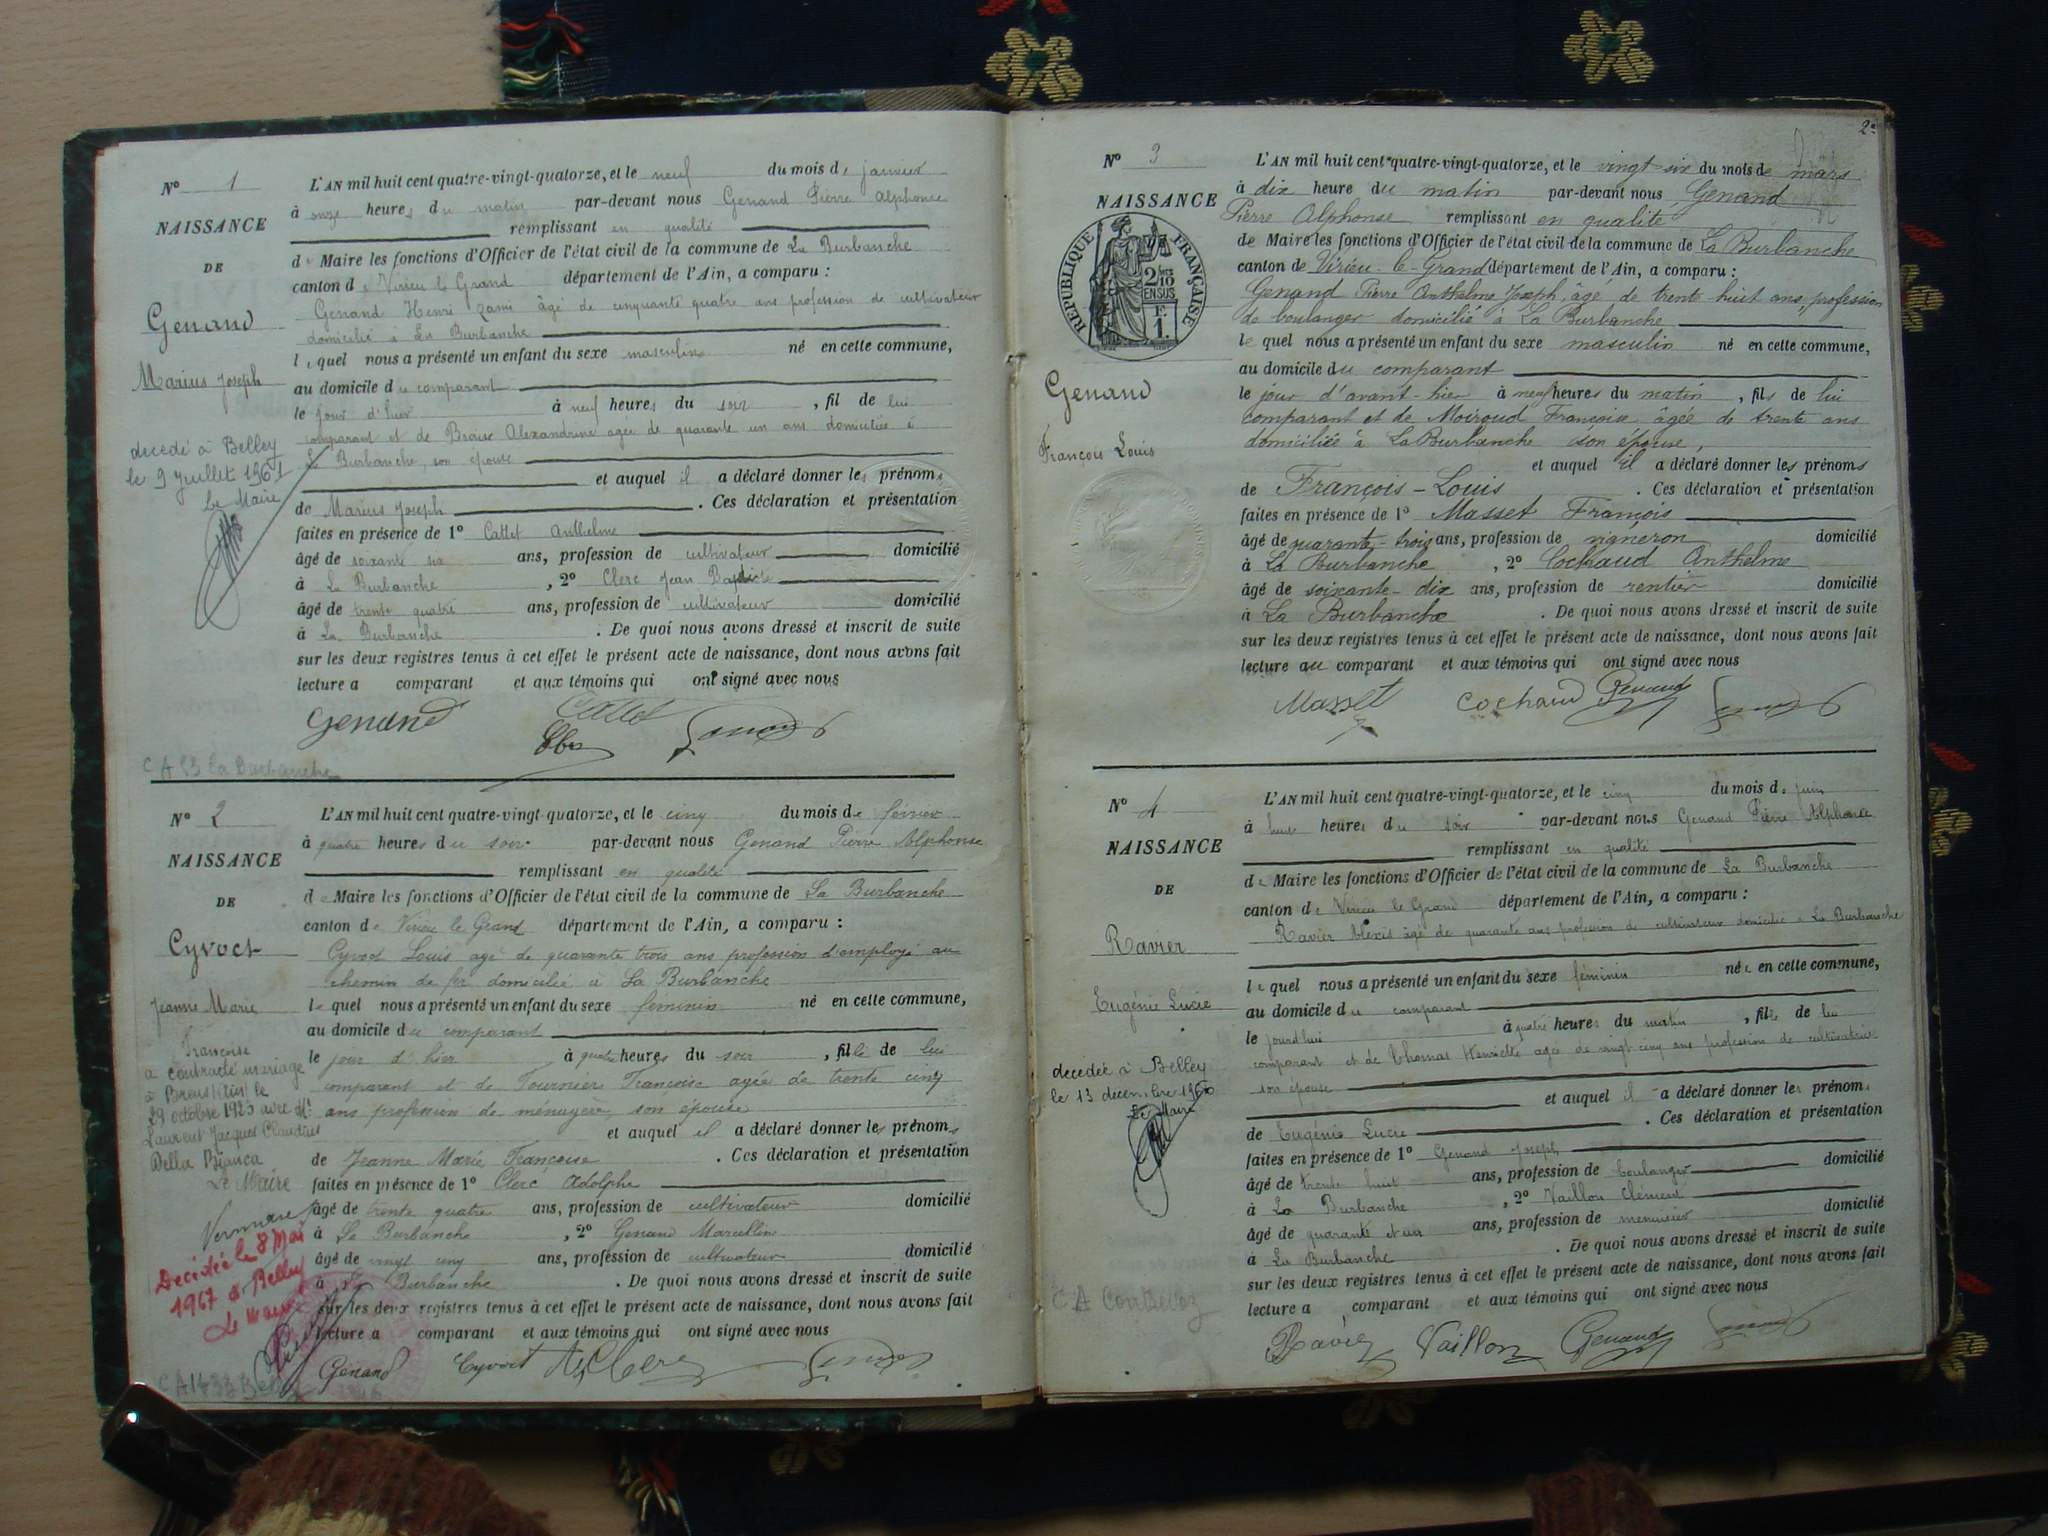 N° 1
NAISSANCE
DE
Genand
Marius Joseph
decedé à Belley
le 9 Juillet 1961
Le Maire
L'AN mil huit cent quatre-vingt-quatorze, et le neuf du mois de janvier
à onze heures du matin par-devant nous Genand Pierre Alphonse
remplissant en qualité
de Maire les fonctions d'Officier de l'état civil de la commune de La Burbanche
canton de Virieu le Grand département de l'Ain, a comparu :
Genand Henri âgé de cinquante quatre ans profession de cultivateur
domicilié à La Burbanche
lequel nous a présenté un enfant du sexe masculin né en cette commune,
au domicile du comparant
le jour d'hier à neuf heures du soir, fil de lui
comparant et de Braise Alexandrine agée de quarante un ans domiciliée à
La Burbanche, son épouse
et auquel il a déclaré donner les prénoms
de Marius Joseph. Ces déclaration et présentation
faites en présence de 1° Cattet Anthelme
âgé de soixante six ans, profession de cultivateur domicilié
à La Burbanche, 2° Clerc Jean Baptiste
âgé de trente quatre ans, profession de cultivateur domicilié
à La Burbanche. De quoi nous avons dressé et inscrit de suite
sur les deux registres tenus à cet effet le présent acte de naissance, dont nous avons fait
lecture a comparant et aux témoins qui ont signé avec nous
Genand Cattet
CA 53 La Burbanche
N° 2
NAISSANCE
DE
Cyvoct
Jeanne Marie
Francoise
a contracté mariage
à le
29 octobre 1925 avec Mr
Laurent Jacques Claudius
Della Bianca
Le Maire
Decédée le 8 Mai
1967 à Belley
Le Maire
L'AN mil huit cent quatre-vingt-quatorze, et le cinq du mois de février
à quatre heures du soir par-devant nous Genand Pierre Alphonse
remplissant en qualité
de Maire les fonctions d'Officier de l'état civil de la commune de La Burbanche
canton de Virieu le Grand département de l'Ain, a comparu :
Cyvoct Louis agé de quarante trois ans profession d'employé au
chemin de fer domicilié à La Burbanche
lequel nous a présenté un enfant du sexe feminin né en cette commune,
au domicile du comparant
le jour d'hier à quatre heures du soir, fille de lui
comparant et de Tournier Francoise agée de trente cinq
ans profession de ménagère, son épouse
et auquel il a déclaré donner les prénoms
de Jeanne Marie Francoise. Ces déclaration et présentation
faites en présence de 1° Clerc Adolphe
âgé de trente quatre ans, profession de cultivateur domicilié
à La Burbanche, 2° Genand Marcellin
âgé de vingt cinq ans, profession de cultivateur domicilié
à La Burbanche. De quoi nous avons dressé et inscrit de suite
sur les deux registres tenus à cet effet le présent acte de naissance, dont nous avons fait
lecture a comparant et aux témoins qui ont signé avec nous
Génand Cyvoct
2e
N° 3
NAISSANCE
REPUBLIQUE FRANÇAISE
2/10 EN SUS
F. 1.
Genand
François Louis
L'AN mil huit cent quatre-vingt-quatorze, et le vingt six du mois de mars
à dix heure du matin par-devant nous Genand
Pierre Alphonse remplissant en qualité
de Maire les fonctions d'Officier de l'état civil de la commune de La Burbanche
canton de Virieu-le-Grand département de l'Ain, a comparu :
Genand Pierre Anthelme Joseph, âgé de trente-huit ans, profession
de boulanger domicilié à La Burbanche
lequel nous a présenté un enfant du sexe masculin né en cette commune,
au domicile du comparant
le jour d'avant-hier à neuf heures du matin, fils de lui
comparant et de Moiroud Françoise, âgée de trente ans
domiciliée à La Burbanche son épouse,
et auquel il a déclaré donner les prénoms
de François-Louis. Ces déclaration et présentation
faites en présence de 1° Masset François
âgé de quarante-trois ans, profession de vigneron domicilié
à La Burbanche, 2° Cochaud Anthelme
âgé de soixante-dix ans, profession de rentier domicilié
à La Burbanche. De quoi nous avons dressé et inscrit de suite
sur les deux registres tenus à cet effet le présent acte de naissance, dont nous avons fait
lecture au comparant et aux témoins qui ont signé avec nous
Masset Cochaud Genand
N° 4
NAISSANCE
DE
Ravier
Eugénie Lucie
decedée à Belley
le 13 decembre 1960
Le Maire
CA Contrevoz
L'AN mil huit cent quatre-vingt-quatorze, et le cinq du mois de juin
à heures du soir par-devant nous Genand Pierre Alphonse
remplissant en qualité
de Maire les fonctions d'Officier de l'état civil de la commune de La Burbanche
canton de Virieu le Grand département de l'Ain, a comparu :
Ravier Alexis âgé de quarante ans profession de cultivateur domicilié à La Burbanche
lequel nous a présenté un enfant du sexe féminin née en cette commune,
au domicile du comparant
le jourd'hui à quatre heures du matin, fille de lui
comparant et de Thomas Henriette agée de vingt-cinq ans profession de cultivatrice
son épouse
et auquel il a déclaré donner les prénoms
de Eugénie Lucie. Ces déclaration et présentation
faites en présence de 1° Genand Joseph
âgé de trente huit ans, profession de boulanger domicilié
à La Burbanche, 2° Vaillon Clément
âgé de quarante et un ans, profession de menuisier domicilié
à La Burbanche. De quoi nous avons dressé et inscrit de suite
sur les deux registres tenus à cet effet le présent acte de naissance, dont nous avons fait
lecture a comparant et aux témoins qui ont signé avec nous
Ravier Vaillon Genand